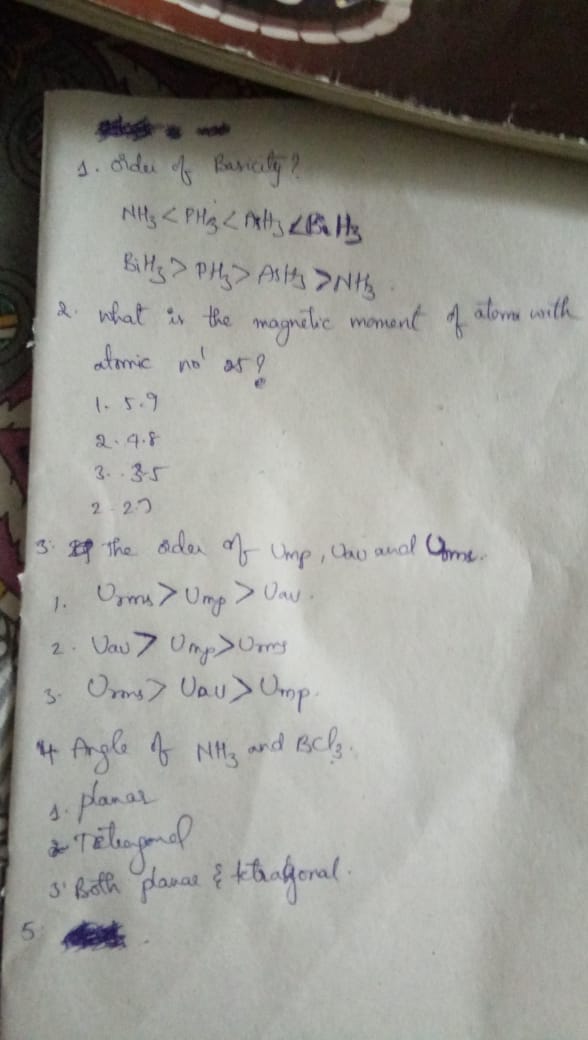 1. order of Basicity?
NH3 < PH3 < AsH3 < BiH3
BiH3 > PH3 > AsH3 > NH3.
2. what is the magnetic moment of atoms with
atomic no' 25?
1. 5.9
2. 4.8
3. . 3.5
2 - 2.7
3. The order of Ump, Uav and Urms.
1. Urms > Ump > Uav.
2. Uav > Ump > Urms
3. Urms > Uav > Ump.
4 Angle of NH3 and BCl3.
1. planar
2 Tetragonal
3. Both planar & tetragonal.
5.